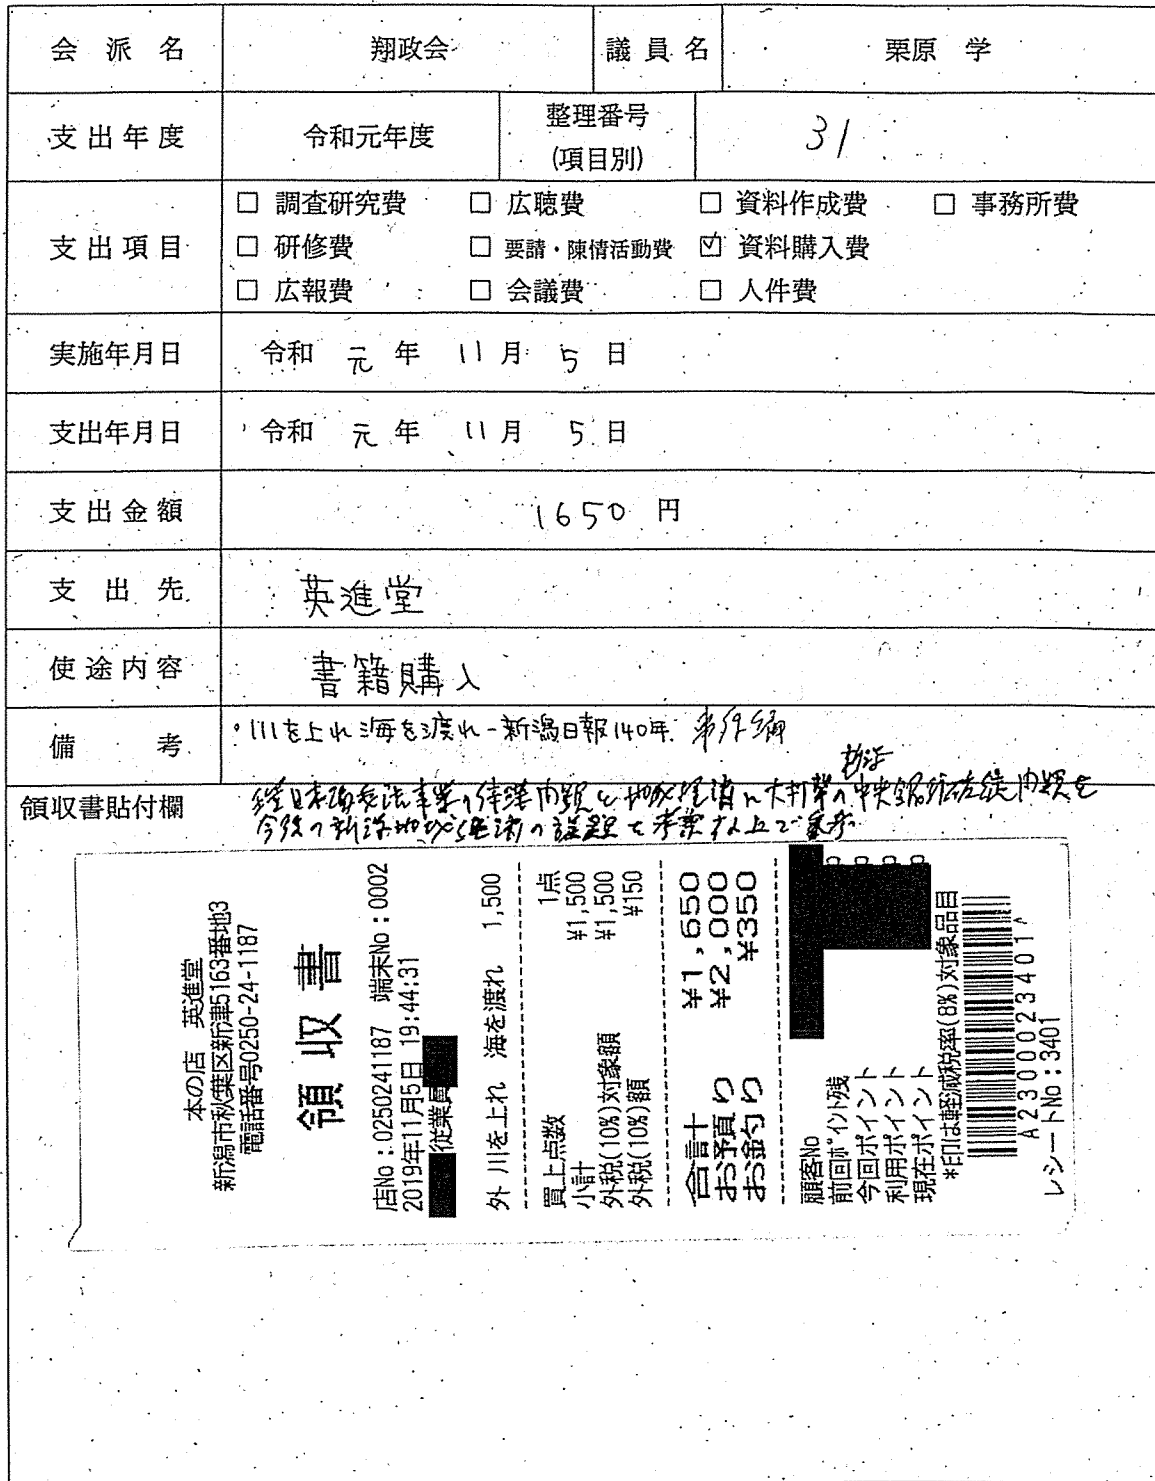 会派名 翔政会 議員名 栗原 学
支出年度 令和元年度 整理番号(項目別) 31
支出項目
□ 調査研究費 □ 広聴費 □ 資料作成費 □ 事務所費
□ 研修費 □ 要請・陳情活動費 ☑ 資料購入費
□ 広報費 □ 会議費 □ 人件費
実施年月日 令和 元 年 11 月 5 日
支出年月日 令和 元 年 11 月 5 日
支出金額 1650 円
支出先 英進堂
使途内容 書籍購入
備考 ・川を上れ海を渡れ-新潟日報140年
領収書貼付欄
本の店 英進堂
新潟市秋葉区新津5163番地3
電話番号0250-24-1187
領収書
店No:0250241187 端末No:0002
2019年11月5日 19:44:31
従業員
外 川を上れ 海を渡れ 1,500
買上点数 1点
小計 ¥1,500
外税(10%)対象額 ¥1,500
外税(10%)額 ¥150
合計 ¥1,650
お預り ¥2,000
お釣り ¥350
顧客No
前回ポイント残
今回ポイント
利用ポイント
現在ポイント
*印は軽減税率(8%)対象品目
A23000023401A
レシートNo:3401